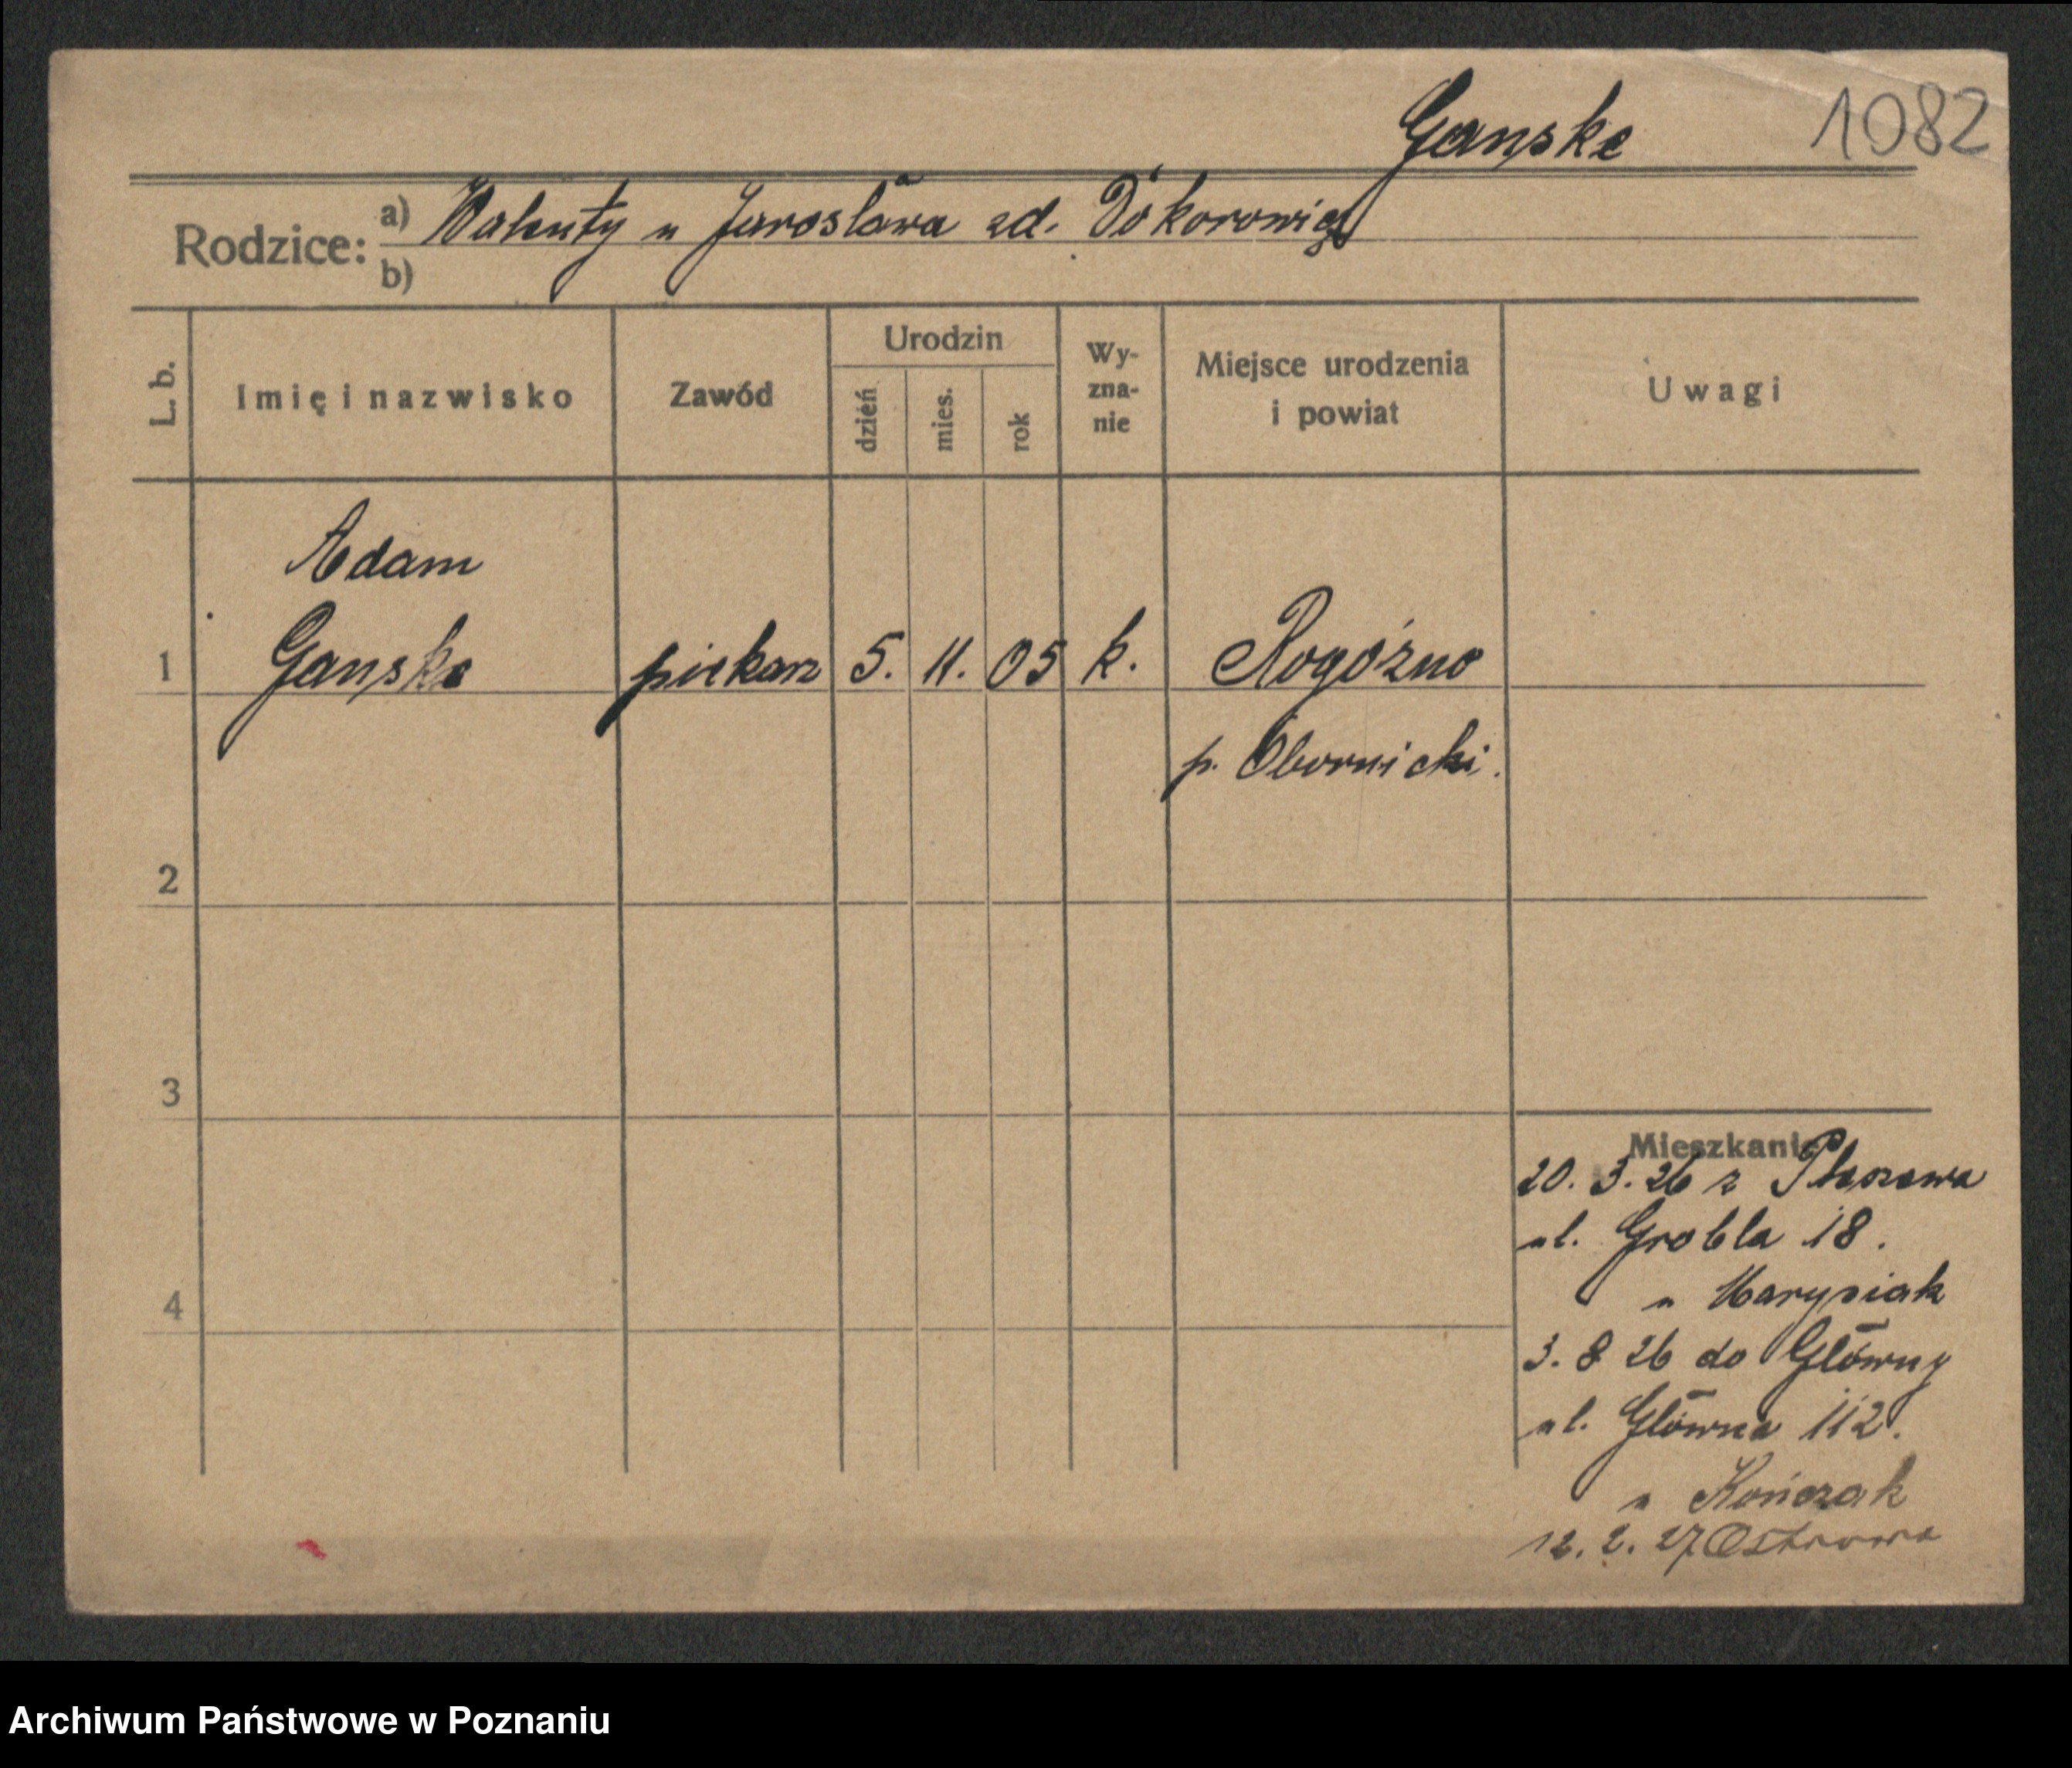 Ganske 1082
Rodzice: a) Walenty u Jarosława zd.
b)
L. b. Imię i nazwisko Zawód Urodzin dzień mies. rok Wyznanie Miejsce urodzenia i powiat Uwagi
Adam
1 Ganske piekarz 5. 11. 05 k. Rogóźno
p. Obornicki.
2
3
4
Mieszkanie
20. 3. 26 z Pleszewa
ul. Grobla 18.
u Marysiak
3. 8 26 do Główny
ul. Główna 112.
u Kończak
12. 2. 27 Ostrowa
Archiwum Państwowe w Poznaniu